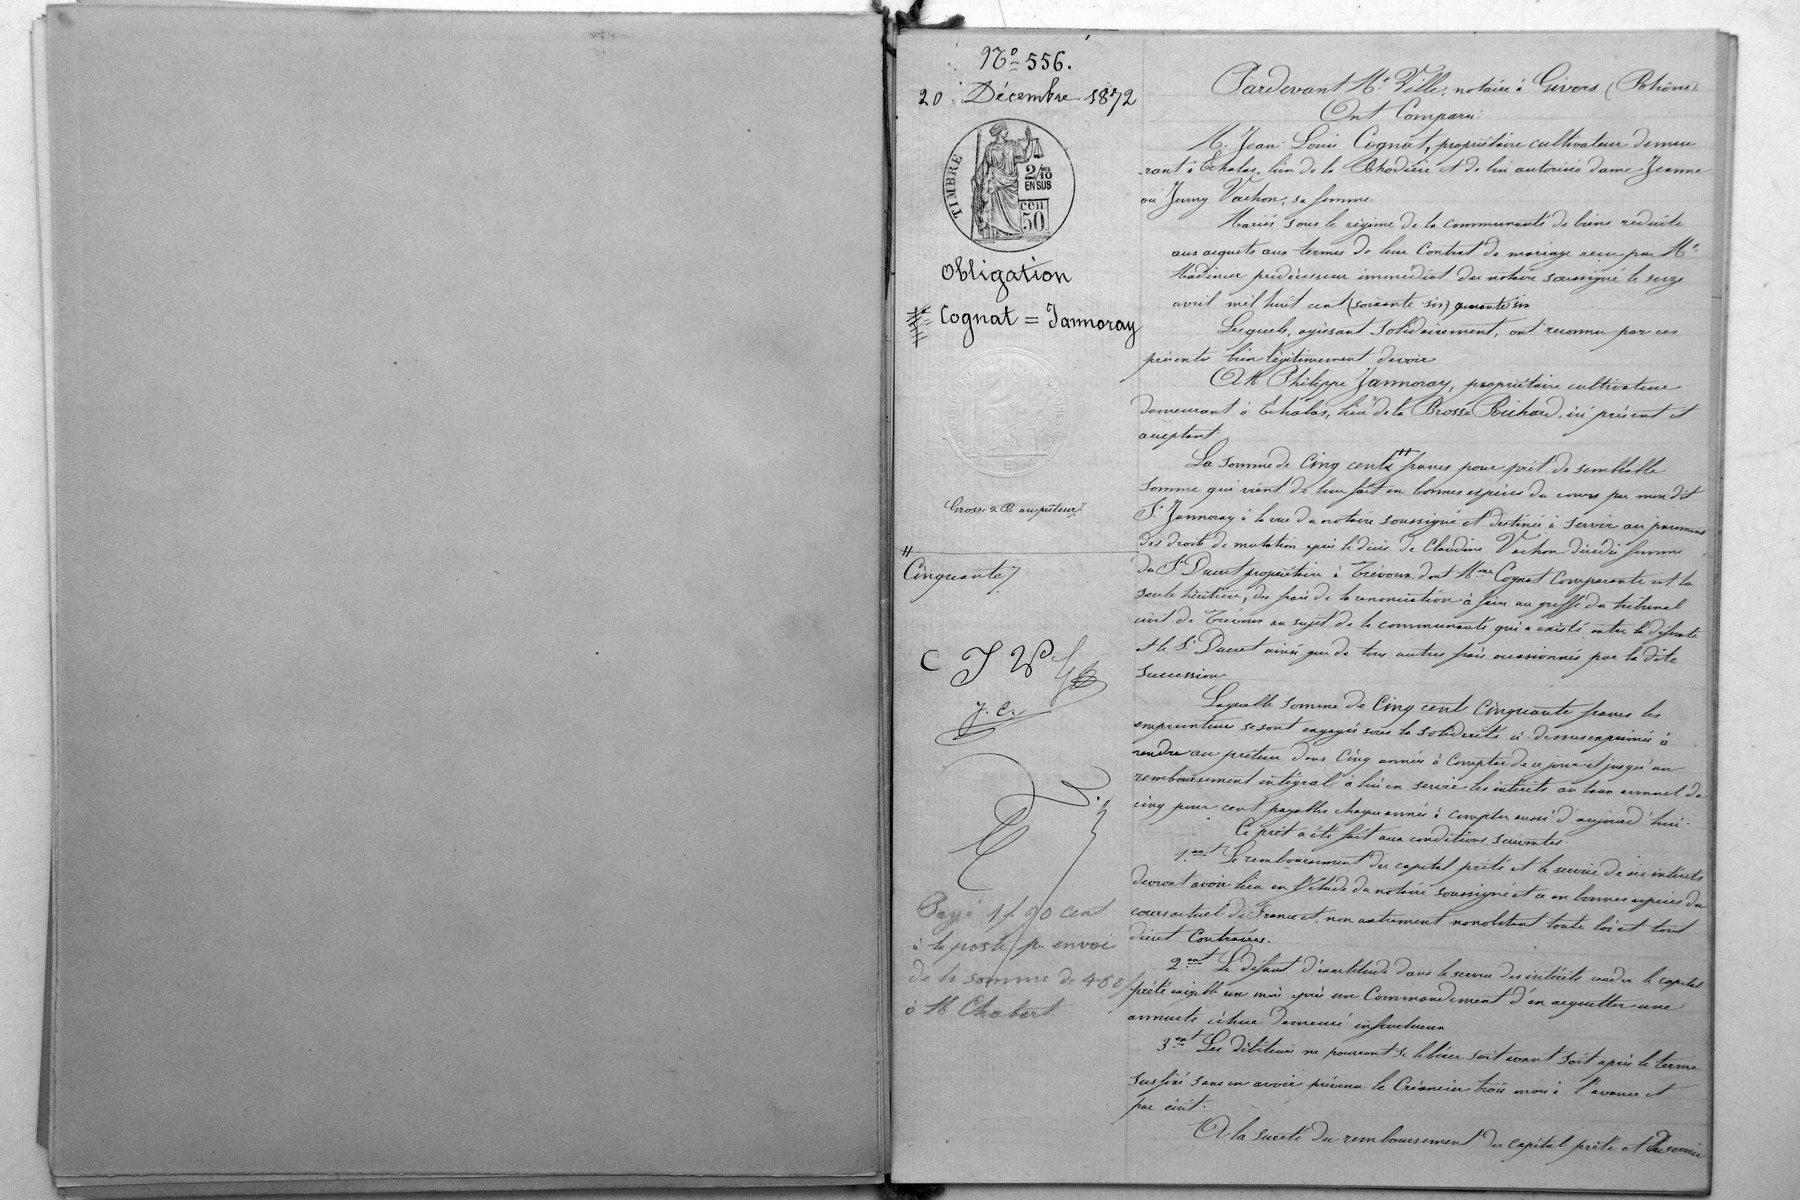 No 556.
20 Décembre 1872
TIMBRE
2/10
EN SUS
cen
50
Obligation
Cognat = Jannoray
Grosse à au prêteur
Cinquante
C J V
J. C.
Payé 1 f. 90 cent
à la poste pr envoi
de la somme de
à M Chabert
Pardevant Me Ville, notaire à Givors (Rhône)
Ont Comparu:
M. Jean Louis Cognat, propriétaire cultivateur demeu
rant à Echalas, lieu de la Rhodière et de lui autorisée dame Jeanne
ou Jenny Vachon, sa femme
Mariés sous le régime de la communauté de biens réduite
aux acquets aux termes de leur Contrat de mariage reçu par Me
Madinier prédécesseur immédiat du notaire soussigné le seize
avril mil huit cent (soixante six) quarante six
Lesquels, agissant solidairement, ont reconnu par ces
présentes bien légitimement devoir
A M Philippe Jannoray, propriétaire cultivateur
demeurant à Echalas, lieu de la Brosse Richard, ici présent et
acceptant
La somme de Cinq cents francs pour prêt de semblable
somme qui vient de leur fait en bonnes espèces du cours par mon dit
Sr Jannoray à la vue du notaire soussigné et destinée à servir au paiement
des droits de mutation après le décès de Claudine Vachon décédée femme
du Sr Ducret propriétaire à Trévoux dont Mme Cognat Comparante est la
seule héritière, des frais de la renonciation à faire au greffe du tribunal
civil de Trévoux au sujet de la communauté qui a existé entre la défunte
et le Sr Ducret ainsi que de tous autres frais occasionnés par la dite
succession
Laquelle somme de Cinq cent Cinquante francs les
emprunteurs se sont engagés sous la solidarité ci-dessus exprimée à
rendre au prêteur dans Cinq années à Compter de ce jour et jusqu'au
remboursement intégral à lui en servir les intérêts au taux annuel de
cinq pour cent payables chaque année à compter aussi d'aujourd'hui.
Ce prêt a été fait aux conditions suivantes
1.ent Le remboursement du capital prêté et le service de ses intérêts
devront avoir lieu en l'étude du notaire soussigné et ce en bonnes espèces du
cours actuel de France et non autrement nonobstant toute loi et tout
décret Contraires.
2ent Le défaut d'exactitude dans le service des intérêts rendra le capital
prêté exigible un mois après un Commandement d'en acquitter une
annuité échue demeuré infructueux
3ent Les débiteurs ne pourront se libérer soit avant soit après le terme
susfixé sans en avoir prévenu le Créancier trois mois à l'avance et
par écrit.
A la sureté du remboursement du capital prêté et du service